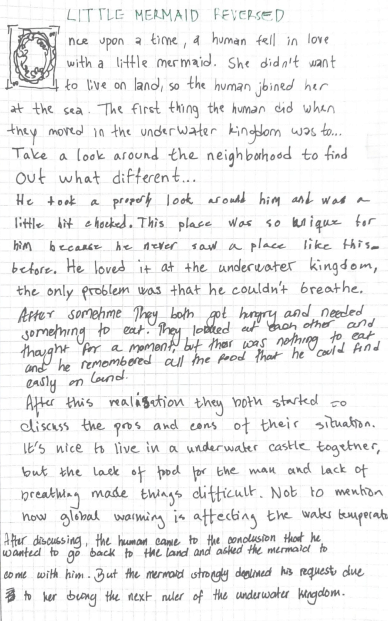 LITTLE MERMAID REVERSED
Once upon a time, a human fell in love
with a little mermaid. She didn't want
to live on land, so the human joined her
at the sea. The first thing the human did when
they moved in the underwater kingdom was to...
Take a look around the neighborhood to find
out what different...
He took a properly look around him and was a
little bit chocked. This place was so unique for
him because he never saw a place like this
before. He loved it at the underwater kingdom,
the only problem was that he couldn't breathe.
After sometime They both got hungry and needed
something to eat. They looked at each other and
thaught for a moment, but ther was nothing to eat
and he remembered all the food that he could find
easily on land.
After this realisation they both started to
discuss the pros and cons of their situation.
It's nice to live in a underwater castle together,
but the lack of food for the man and lack of
breathing made things difficult. Not to mention
how global warming is affecting the water temperate
After discussing, the human came to the conclusion that he
wanted to go back to the land and asked the mermaid to
come with him. But the mermaid strongly declined his request due
to her being the next ruler of the underwater kingdom.